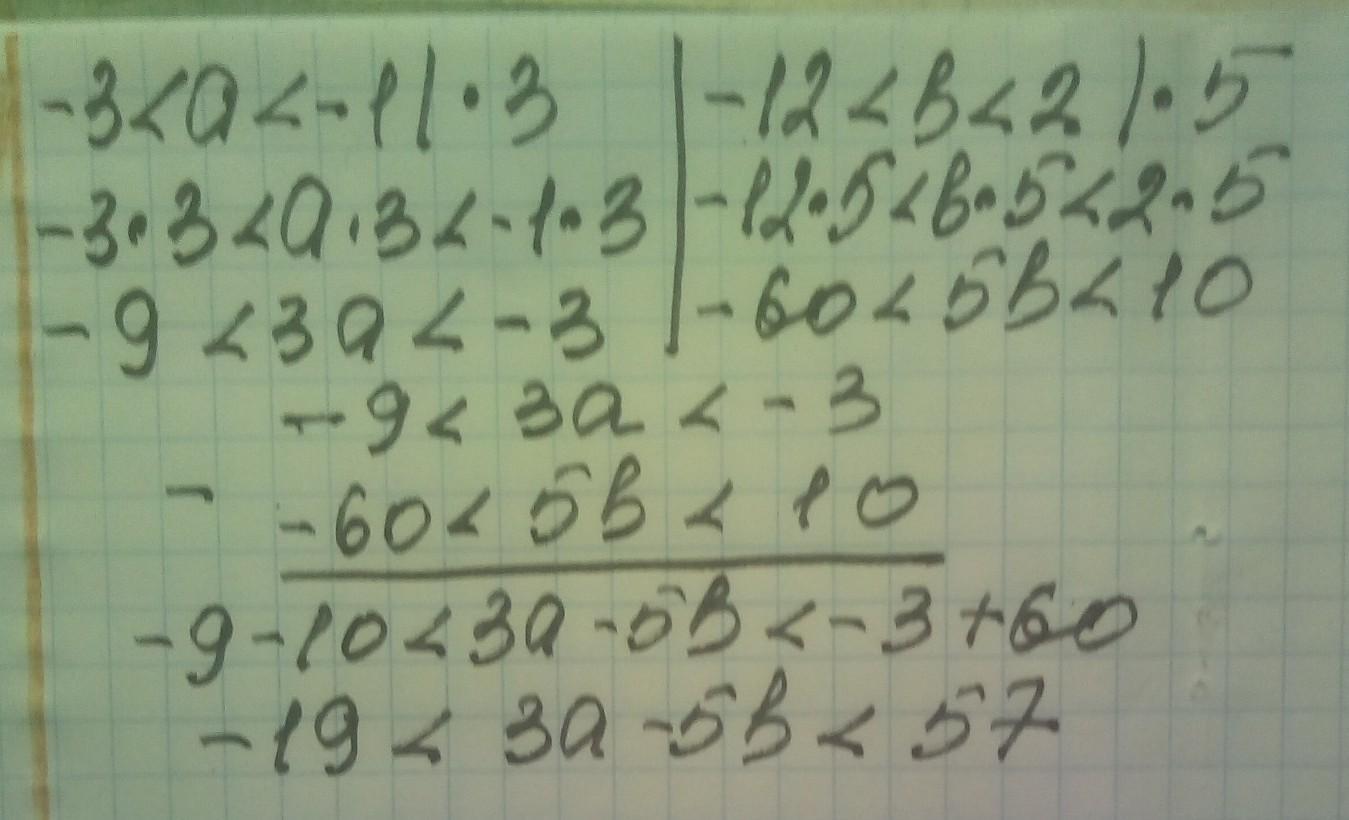 -3<a<-1|·3 | -12<b<2|·5
-3·3<a·3<-1·3 | -12·5<b·5<2·5
-9<3a<-3 | -60<5b<10
-9<3a<-3
- -60<5b<10
-9-10<3a-5b<-3+60
-19<3a-5b<57